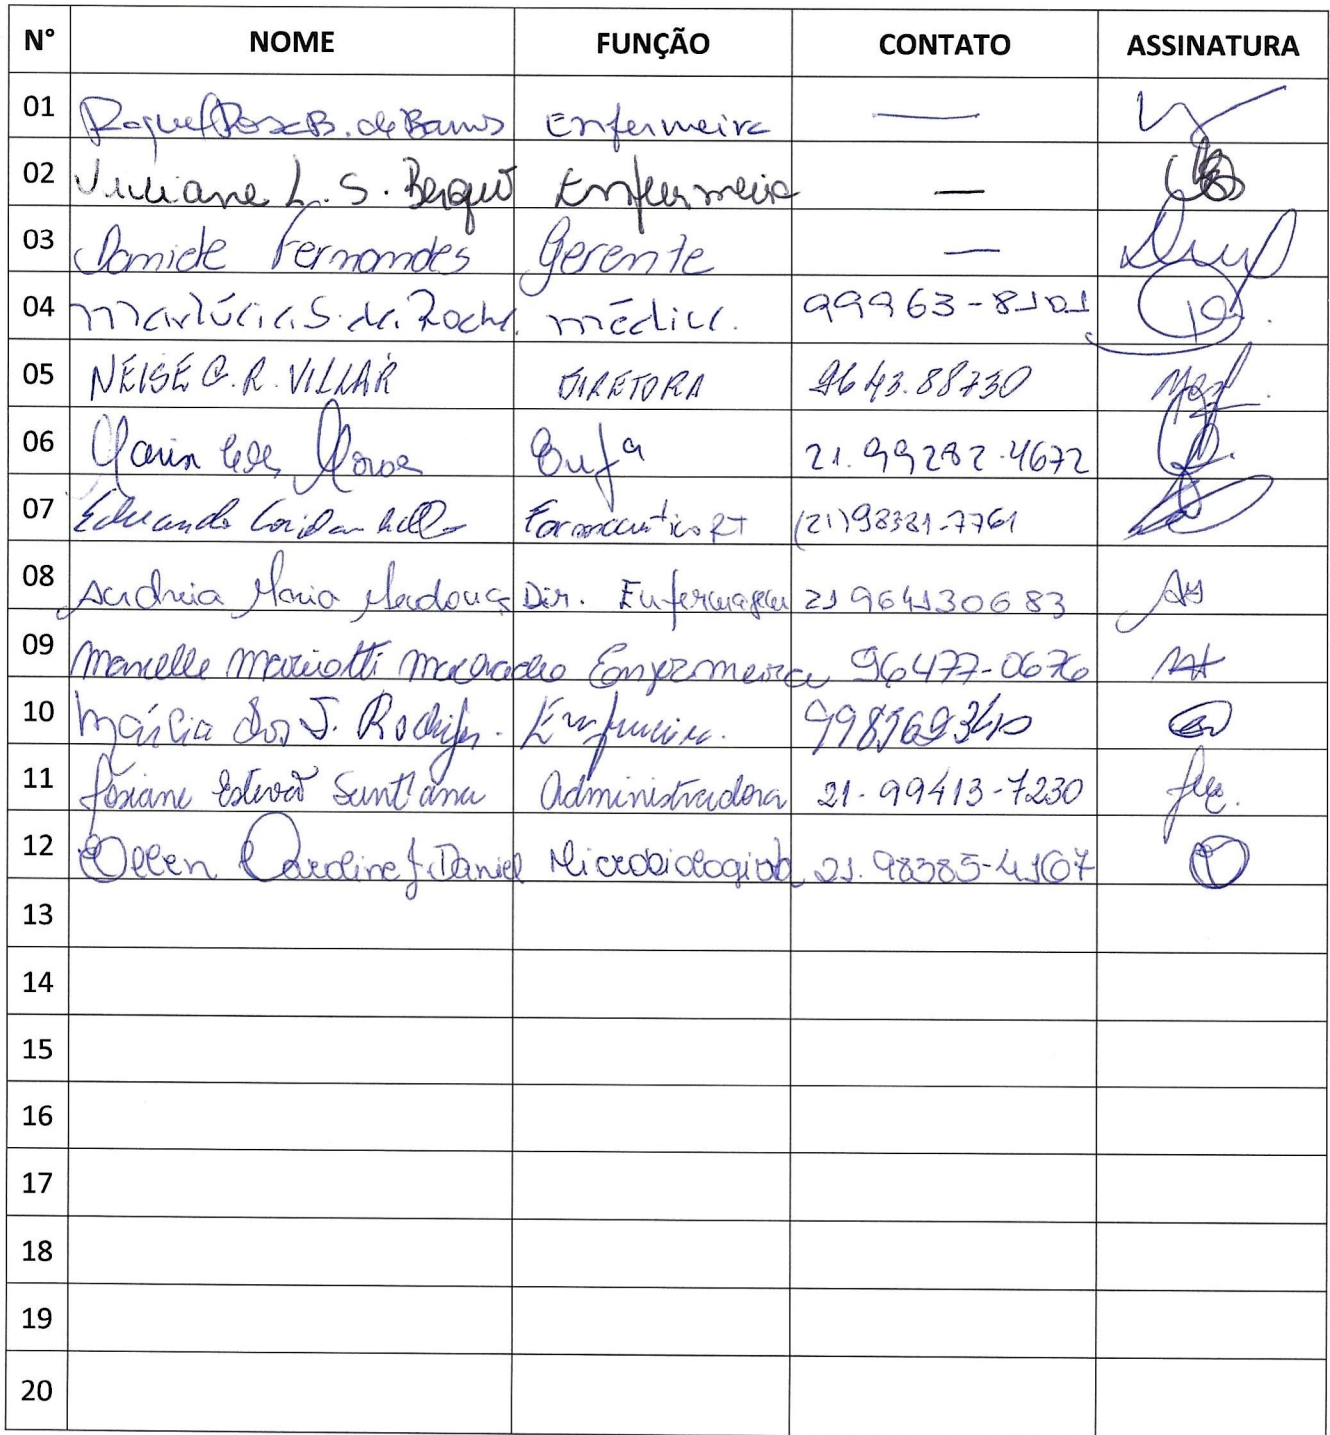 N° NOME FUNÇÃO CONTATO ASSINATURA
01 Raquel Rosa B. de Barros Enfermeira —
02 Juliane L. S. Berquó Enfermeira —
03 Daniele Fernandes Gerente —
04 Marlúcia S. da Rocha médica. 99963-8101
05 NEISE G. R. VILLAR DIRETORA 9643.88730
06 Enfª 21.99282.4672
07 Eduardo Farmacêutico RT (21)98381-7761
08 Andreia Maria Mendonça Dir. Enfermagem 21964130683
09 Marcelle Mariotti Machado Enfermeira 96477-0676
10 Márcia dos J. Rodrigues. Enfermeira.
11 Josiane Estevão Sant'ana Administradora 21-99413-7230
12 Ellen Caroline J. Daniel Microbiologista 21.98385-4167
13
14
15
16
17
18
19
20